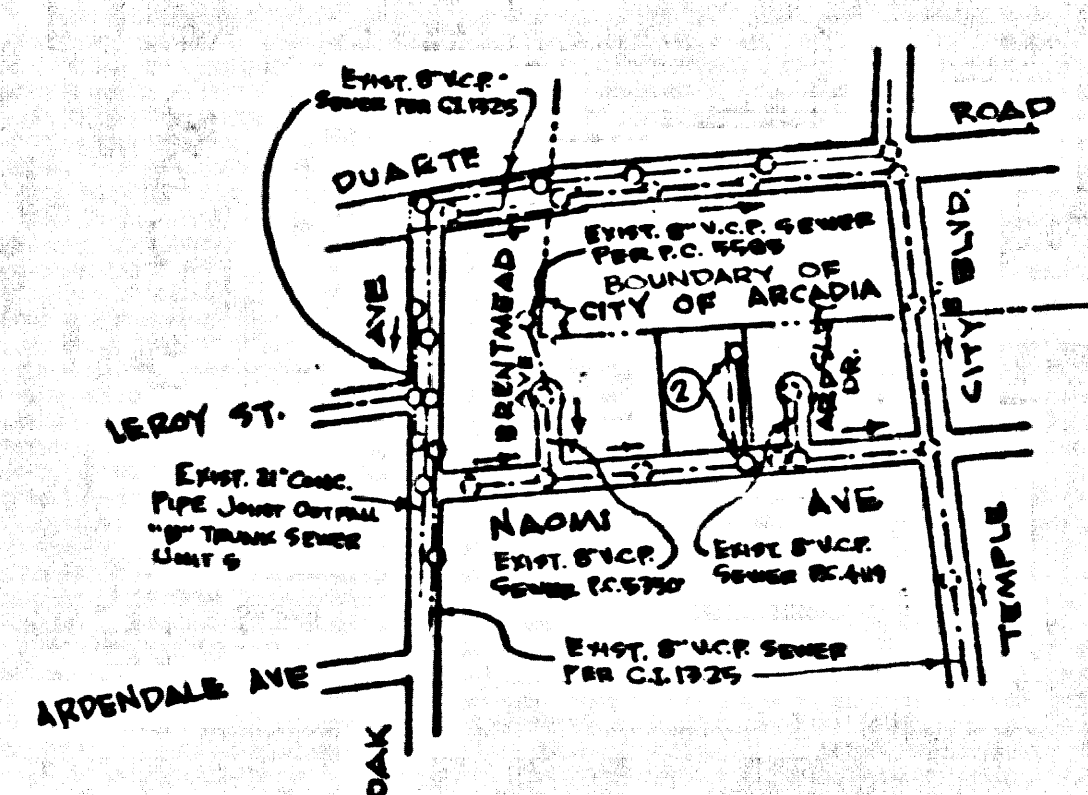 EXIST. 8" V.C.P.
SEWER PER C.I. 1325
DUARTE
ROAD
EXIST. 8" V.C.P. SEWER
PER P.C. 5585
BOUNDARY OF
CITY OF ARCADIA
AVE
BRENTMEAD
AVE
DR.
CITY BLVD.
2
LEROY ST.
EXIST. 21" CONC.
PIPE JOINT OUTFALL
TRUNK SEWER
UNIT 5
NAOMI
AVE
EXIST. 8" V.C.P.
SEWER P.C. 5750
EXIST. 8" V.C.P.
SEWER P.C. 4119
TEMPLE
EXIST. 8" V.C.P. SEWER
PER C.I. 1325
ARDENDALE AVE
OAK